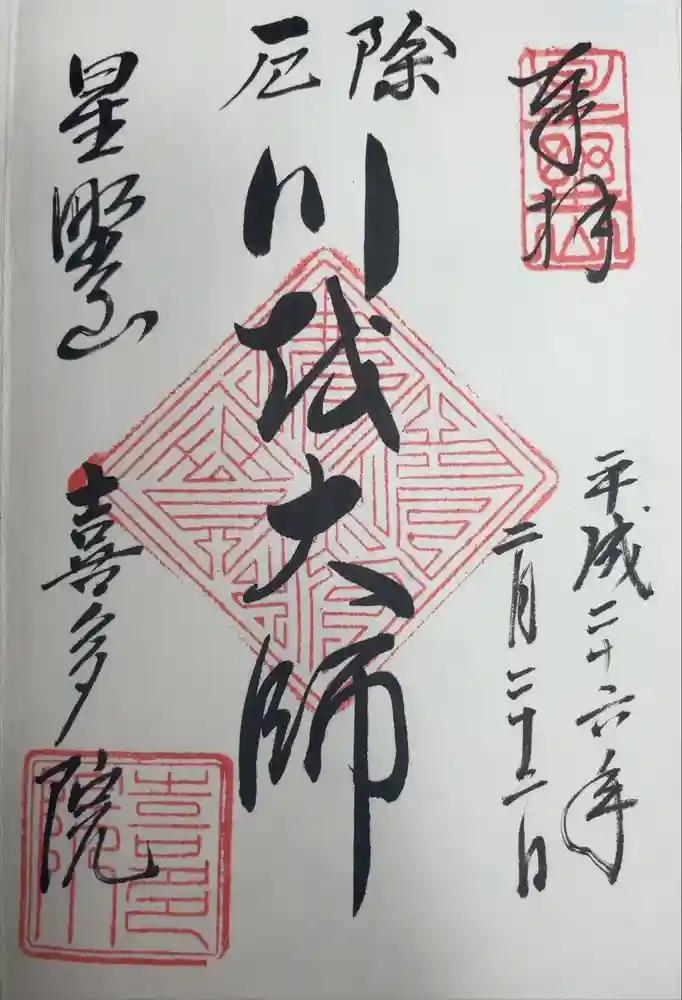 奉拝
平成二十六年
二月二十二日
厄除
川越大師
星野山
喜多院